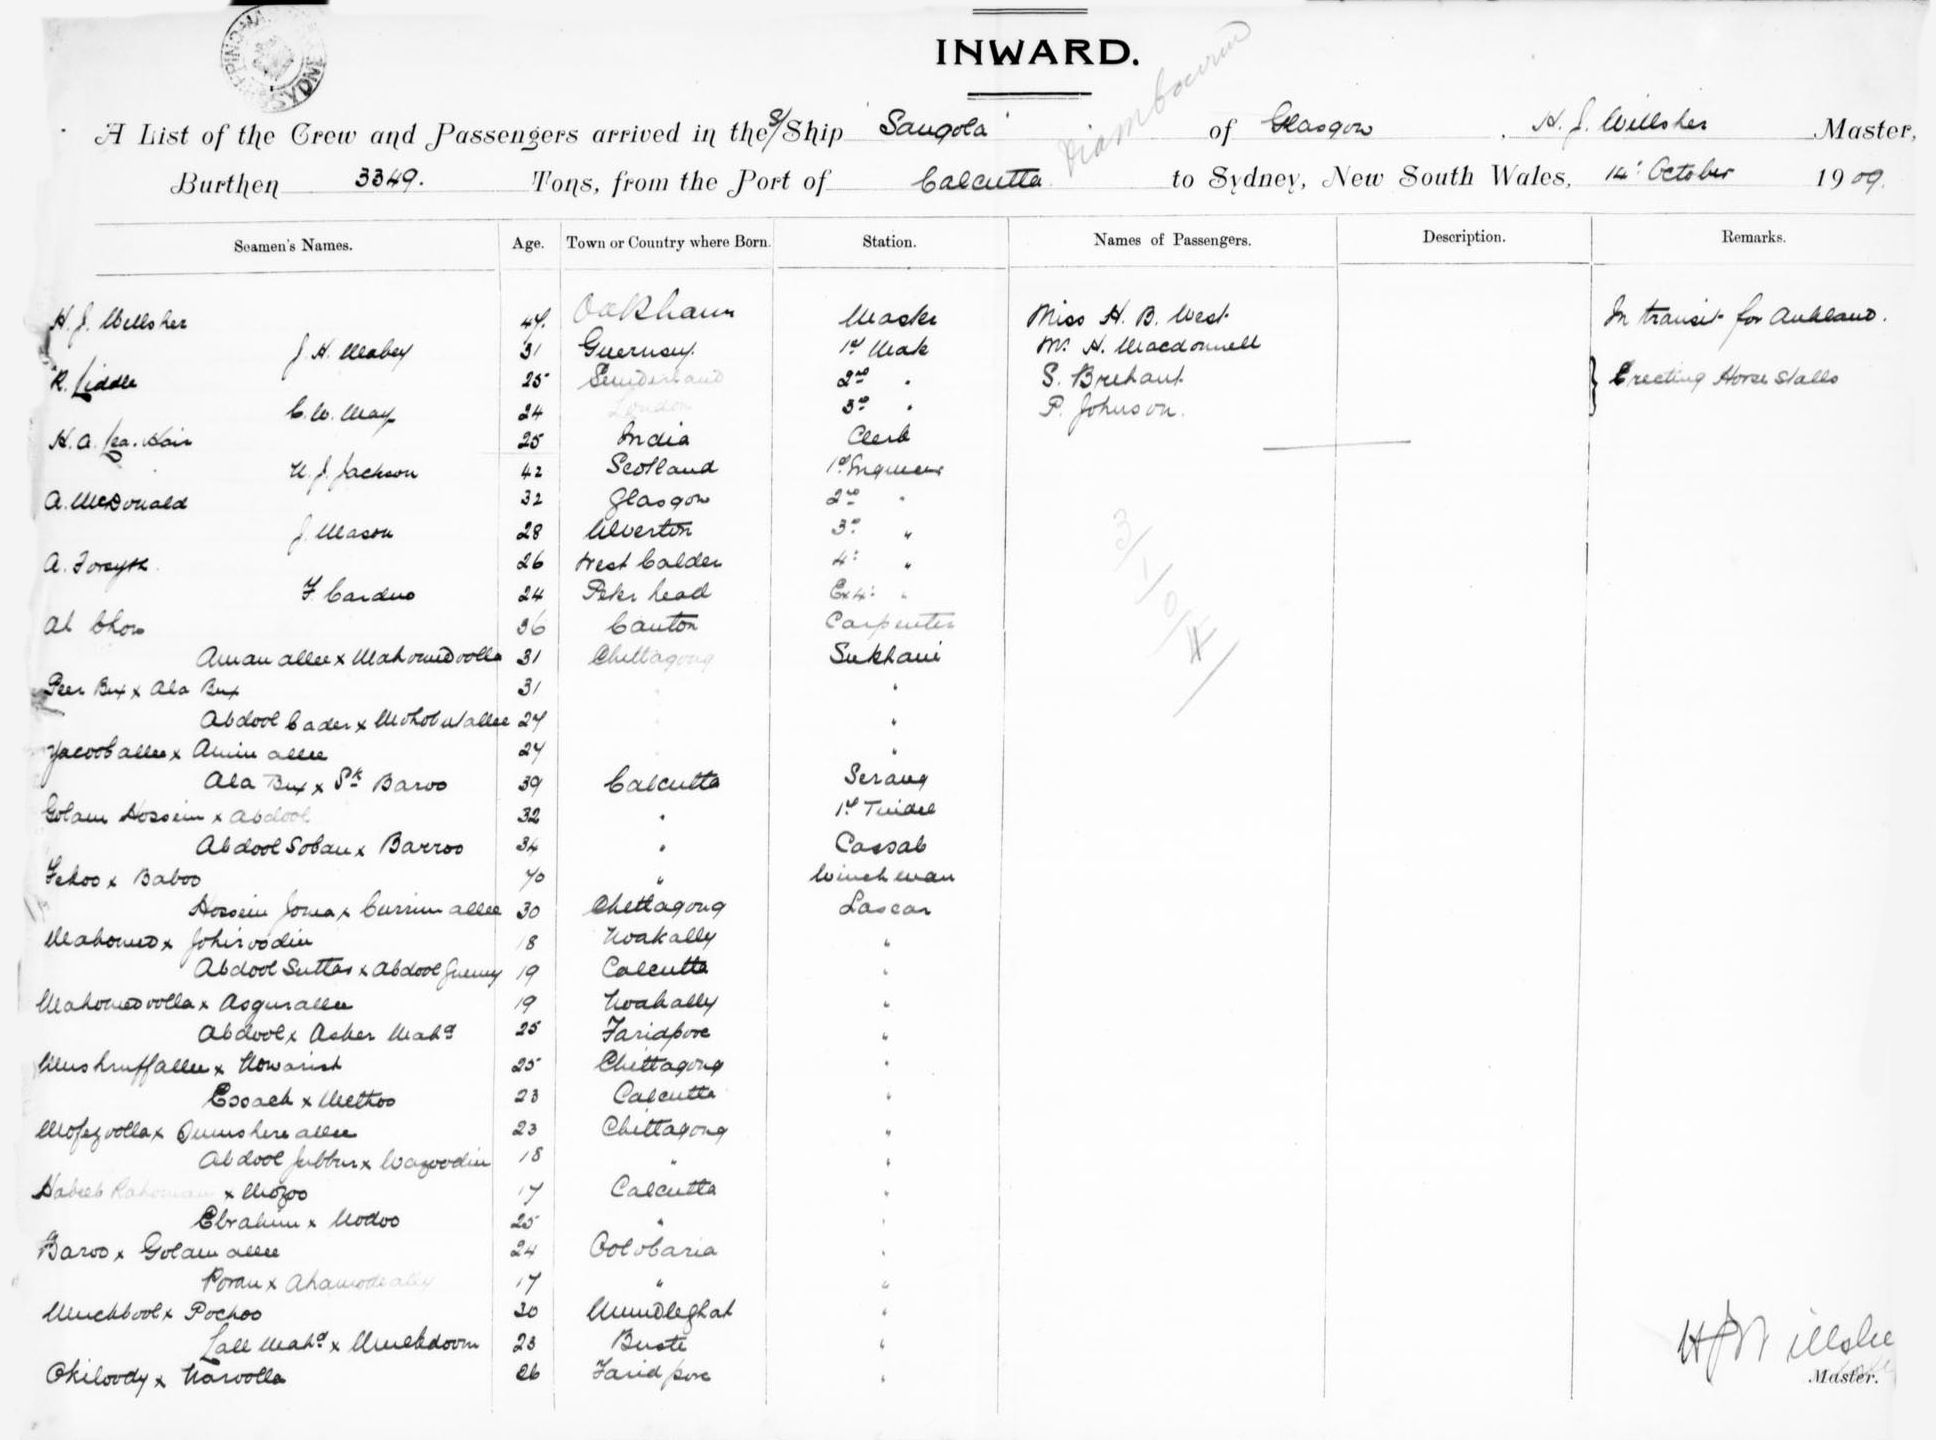 INWARD.
A List of the Crew and Passengers arrived in the S/Ship "Sangola" of Glasgow, H. J. Willsher Master,
Burthen 3349. Tons, from the Port of Calcutta to Sydney, New South Wales, 14: October 1909.
Seamen's Names. Age. Town or Country where Born. Station. Names of Passengers. Description. Remarks.
H. J. Willsher 47. Oakham Master Miss H. B. West In transit for Aukland.
J. H. Mabey 31 Guernsey. 1st Mate Mr H. Macdonnell
R. Liddle 25 Sunderland 2nd " S. Brehaut } Erecting Horse Stalls
C. W. May 24 London 3rd " P. Johnson.
H. A. Lea. Hair 25 India Clerk
W. J. Jackson 42 Scotland 1st Engineer
A. McDonald 32 Glasgow 2nd "
J. Mason 28 Ulverton 3rd "
A. Forsyth 26 West Calder 4: "
F. Carduo 24 Peter head Ex 4: "
Ah Chow 36 Canton Carpenter
Aman allee x Mahomedoolla 31 Chittagong Sukhani
Peer Bux x Ala Bux 31 " "
Abdool Cader x 27 " "
Yacoob allee x Amin allee 27 " "
Ala Bux x Sk Baroo 39 Calcutta Serang
Golam Hossein x Abdool 32 " 1st Tindel
Abdool Soban x Barroo 34 " Cassab
Fekoo x Baboo 40 " Winchman
Hossein Joma x Currim allee 30 Chittagong Lascar
Mahomed x Johiroodin 18 Noakally "
Abdool Suttar x Abdool Guney 19 Calcutta "
Mahomedoolla x Asgurallee 19 Noakally "
Abdool x Asker Mahd 25 Faridpore "
Mushruffallee x Nowarish 25 Chittagong "
Essack x Methoo 23 Calcutta "
Mofezoolla x allee 23 Chittagong "
Abdool Jubbur x Wazoodin 18 " "
Habeeb Rahoman x Mozoo 17 Calcutta "
Ebrahim x Nodoo 25 " "
Baroo x Golam allee 24 Oolobaria "
Poran x Ahamodeally 17 " "
Muckbool x Pochoo 30 Mundleghat "
Lall Mahd x Muckdoom 23 Buste "
Okiloody x Naroolla 26 Faridpore "
H J Willsher
Master.